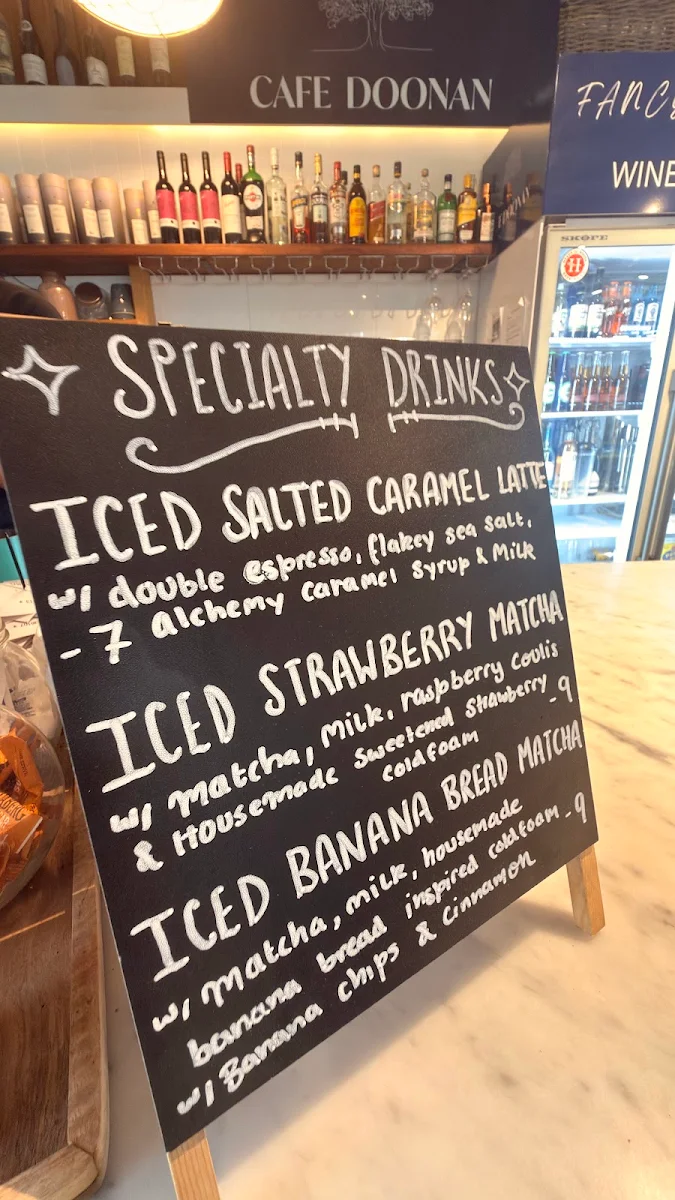 CAFE DOONAN
FANCY
WINE
SKOPE
H
SPECIALTY DRINKS
ICED SALTED CARAMEL LATTE
w/ double espresso, flakey sea salt,
- 7 alchemy caramel syrup & Milk
ICED STRAWBERRY MATCHA
w/ Matcha, Milk, raspberry coulis
& Housemade sweetened strawberry - 9
coldfoam
ICED BANANA BREAD MATCHA
w/ Matcha, milk, housemade
banana bread inspired coldfoam - 9
w/ Banana chips & Cinnamon